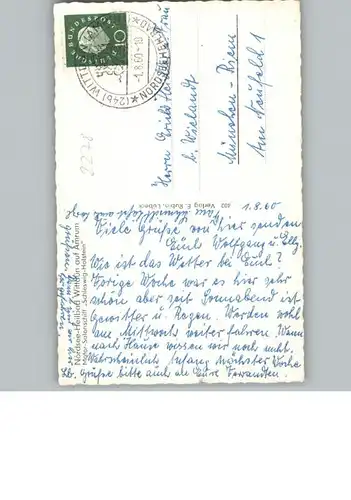 DEUTSCHE BUNDESPOST
10
(24b) WITTDÜN
NORDSEEHEILBAD
-1.8.60.-10
2278
Herrn Erich
b. Wieland
München - Riem
Am Neufeld 1
Nordsee-Heilbad Wittdün auf Amrum
"Schleswig-Holstein"
323 Verlag E. Rubin, Lübeck
1.8.60
Viele Grüße von hier senden
Euch Wolfgang u. Elly.
Wie ist das Wetter bei Euch?
Vorige Woche war es hier sehr
schön aber seit Sonnabend ist
Gewitter u. Regen. Werden wohl
am Mittwoch weiter fahren. Wann
nach Hause wissen wir noch nicht.
Wahrscheinlich Anfang nächster Woche
Lb. Grüße bitte auch an Eure Verwandten.